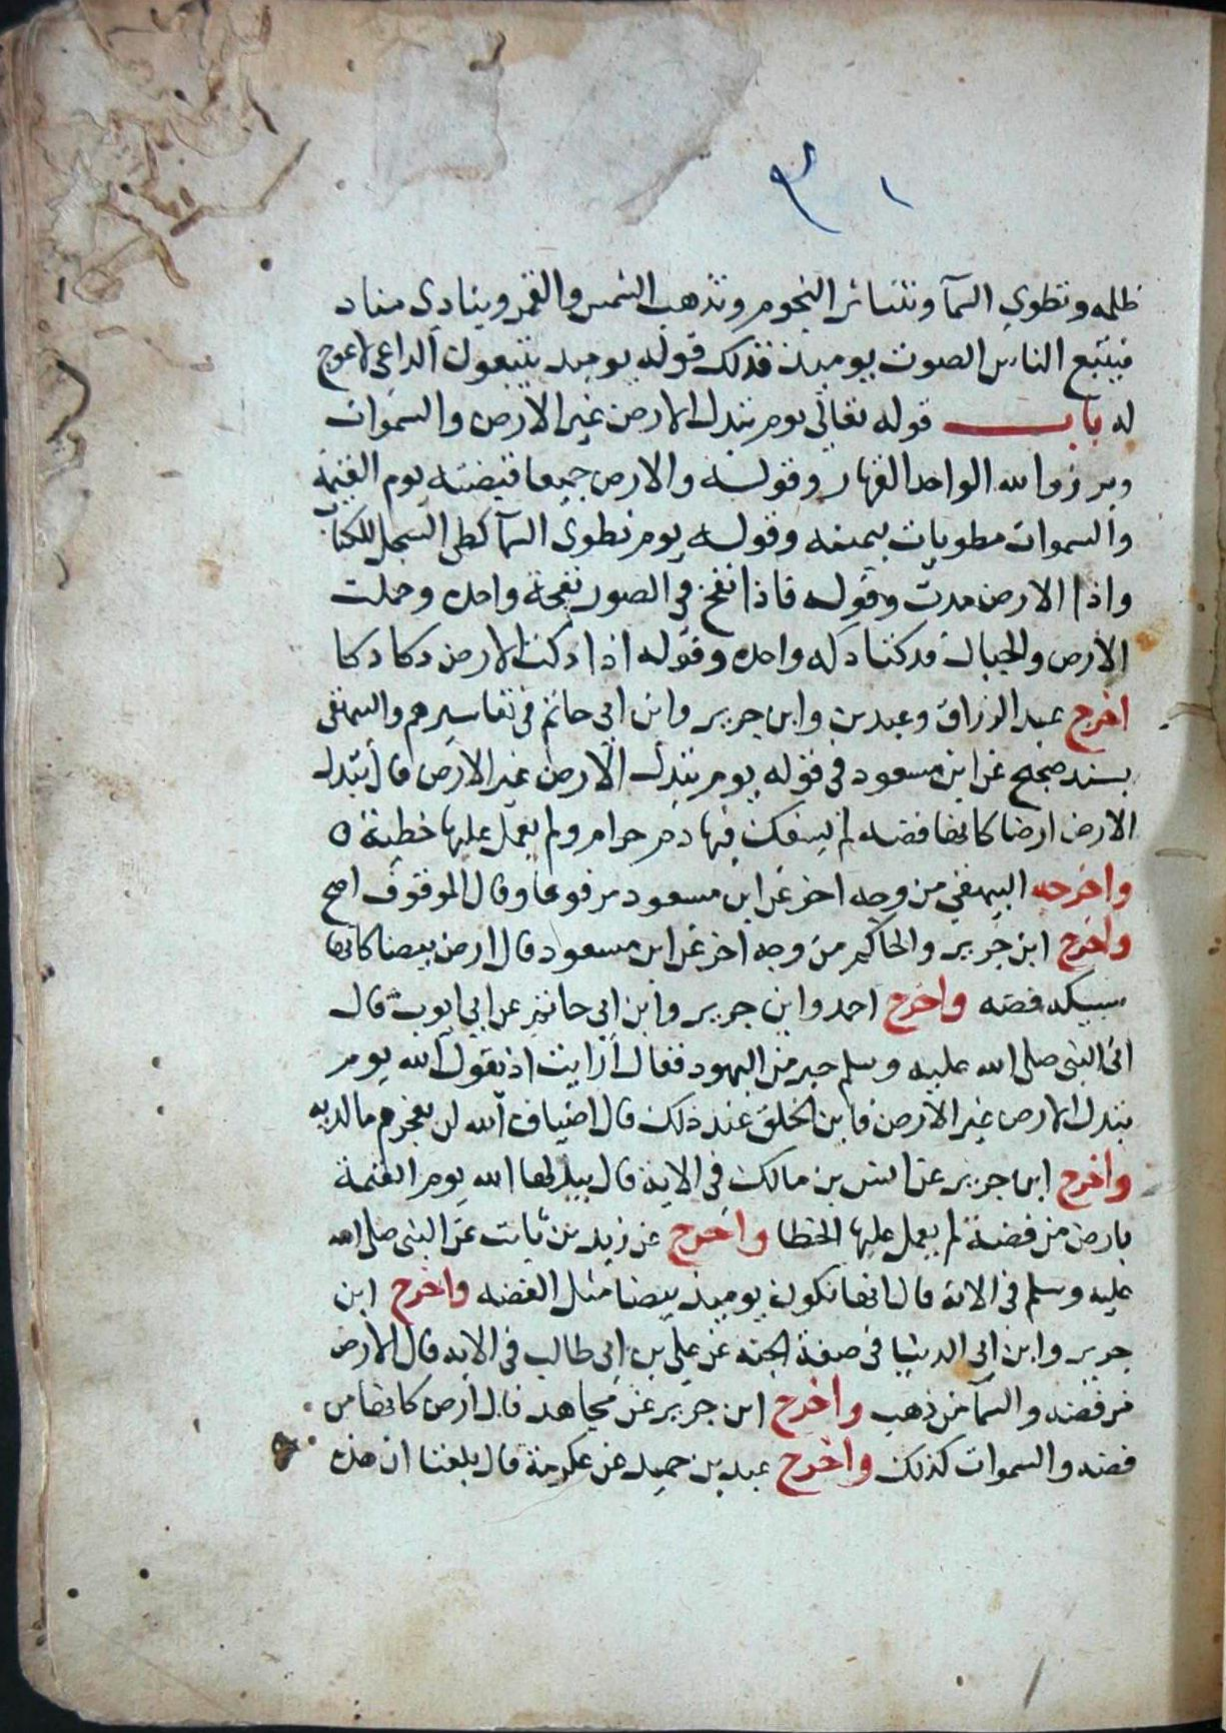 ظلمه وتطوي السمآ وتتناثر النجوم وتذهب الشمس والقمر وينادي مناد
فيتبع الناس الصوت يوميذ فذلك قوله يوميذ يتبعون الداعي لا عوج
له باب قوله تعالي يوم تبدل الارض غير الارض والسموات
وبرزوا لله الواحد القهار وقوله والارض جميعا قبضته يوم القيمة
والسموات مطويات بيمينه وقوله يوم نطوي السمآ كطي السجل للكتاب
واذا الارض مدت وقوله فاذا نفخ في الصور نفخة واحده وحملت
الارض والجبال فدكتا دكه واحده وقوله اذا دكت الارض دكا دكا
اخرج عبد الرزاق وعبد بن وابن جرير وابن ابي حاتم في تفاسيرهم والبيهقي
بسند صحيح عن ابن مسعود في قوله يوم تبدل الارض غير الارض قال تبدل
الارض ارضا كانها فضه لم يسفك فيها دم حرام ولم يعمل عليها خطية ه
واخرجه البيهقي من وجه اخر عن ابن مسعود مرفوعا وقال الموقوف اصح
واخرج ابن جرير والحاكم من وجه اخر عن ابن مسعود قال ارض بيضا كانها
سبيكه فضه واخرج احمد وابن جرير وابن ابي حاتم عن ابي ايوب قال
اتي النبي صلي الله عليه وسلم حبر من اليهود فقال ارايت اذ يقول الله يوم
تبدل الارض غير الارض فاين الخلق عند ذلك قال اضياف الله لن يعجزهم ما لديه
واخرج ابن جرير عن انس بن مالك في الايه قال يبدلها الله يوم القيمة
بارض من فضة لم يعمل عليها الخطا واخرج عن زيد بن ثابت عن النبي صلي الله
عليه وسلم في الاية قال انها تكون يوميذ بيضا مثل الفضه واخرج ابن
جرير وابن ابي الدنيا في صفة الجنه عن علي بن ابي طالب في الايه قال الارض
من فضه والسمآ من ذهب واخرج ابن جرير عن مجاهد قال ارض كانها من
فضه والسموات كذلك واخرج عبد بن حميد عن عكرمة قال بلغنا ان هذه